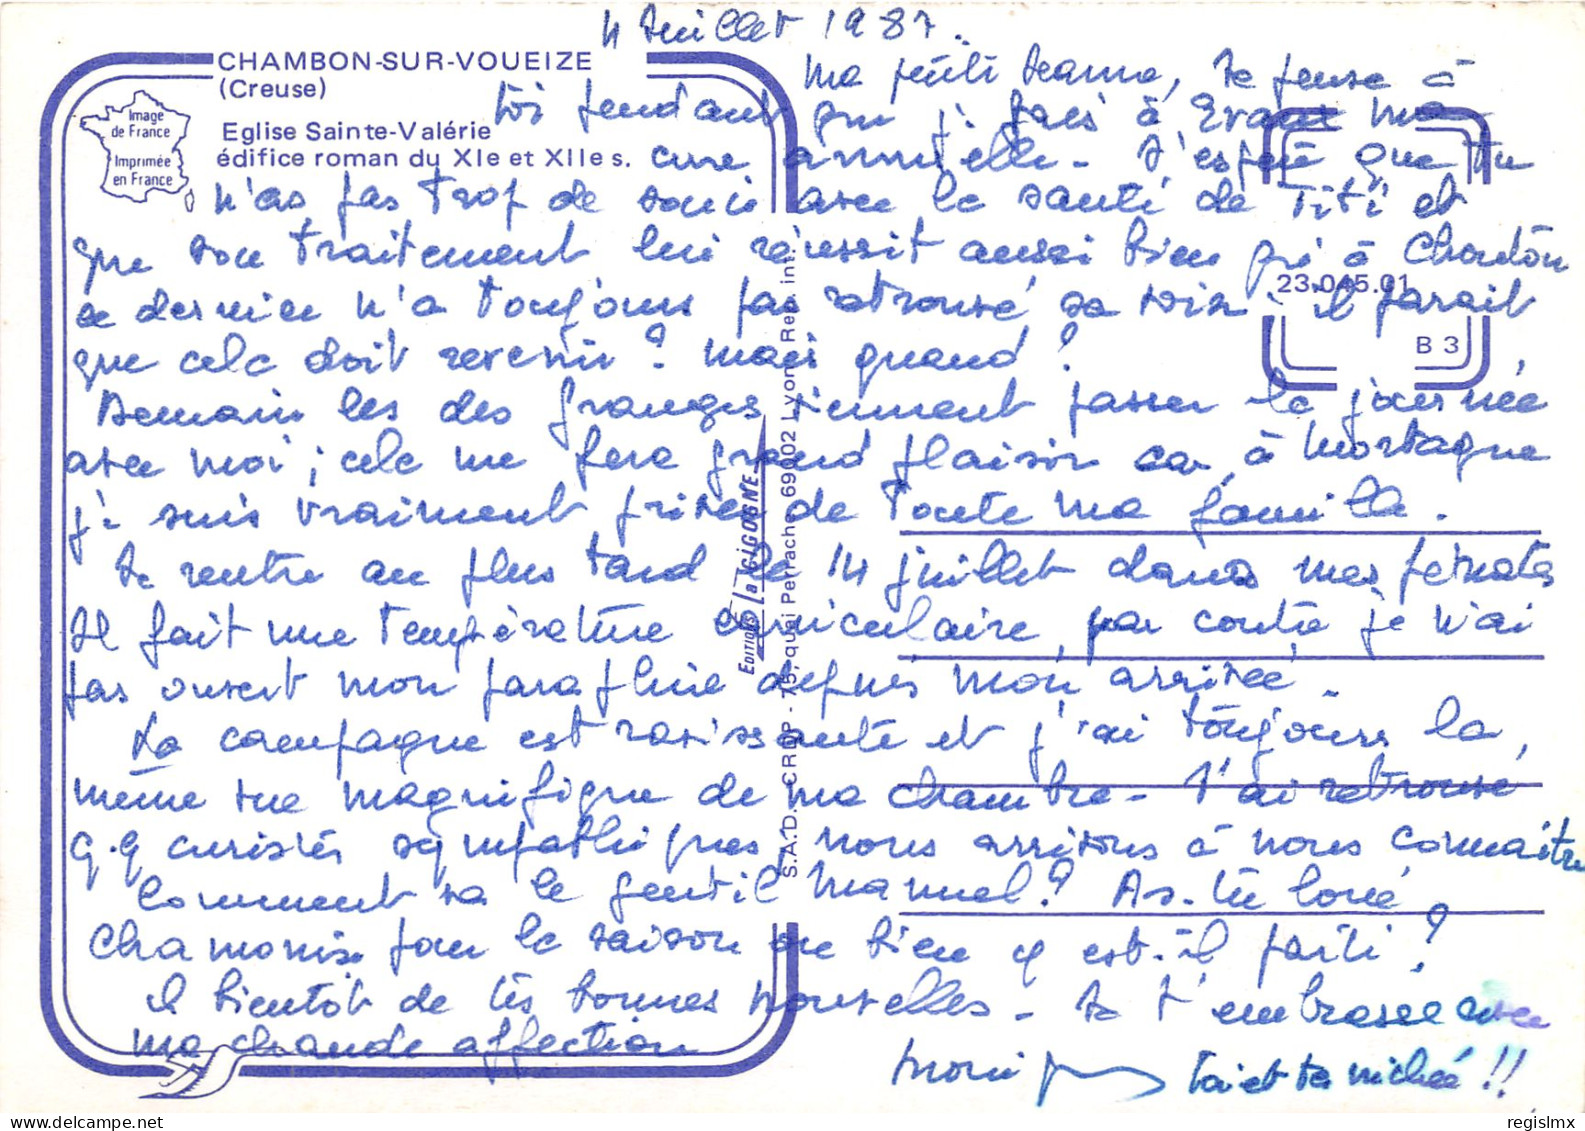 4 Juillet 1987.
CHAMBON-SUR-VOUEIZE
(Creuse)
Image de France
Imprimée en France
Eglise Sainte-Valérie
édifice roman du XIe et XIIe s.
Ma petite Jeanne, Je pense à
toi pendant que je fais à Evaux ma
cure annuelle - J'espère que tu
n'as pas trop de soucis avec la santé de Titi et
que son traitement lui réussit aussi bien qu'à Chouton
ce dernier n'a toujours pas retrouvé sa voix : il parait
que cela doit revenir ? mais quand ?
Demain les des Granges viennent passer la journée
avec moi ; cela me fera grand plaisir car à Mortagne
je suis vraiment privée de toute ma famille.
Je rentre au plus tard le 14 juillet dans mes pénates
Il fait une température caniculaire, par contre je n'ai
pas ouvert mon parapluie depuis mon arrivée.
La campagne est ravissante et j'ai toujours la
même vue magnifique de ma chambre - J'ai retrouvé
q.q curistes sympathiques, nous arrivons à nous connaitre
Comment va le gentil Manuel ? As-tu loué
Chamonix pour la saison ou bien y est-il parti ?
A bientôt de tes bonnes nouvelles - Je t'embrasse avec
ma chaude affection
toi et ta nichée !!
Monique
23.045.01
B 3
EDITIONS La CIGOGNE
S.A.D. - CRDP - 75, quai Perrache 69002 Lyon - Rep. int.
regislmx